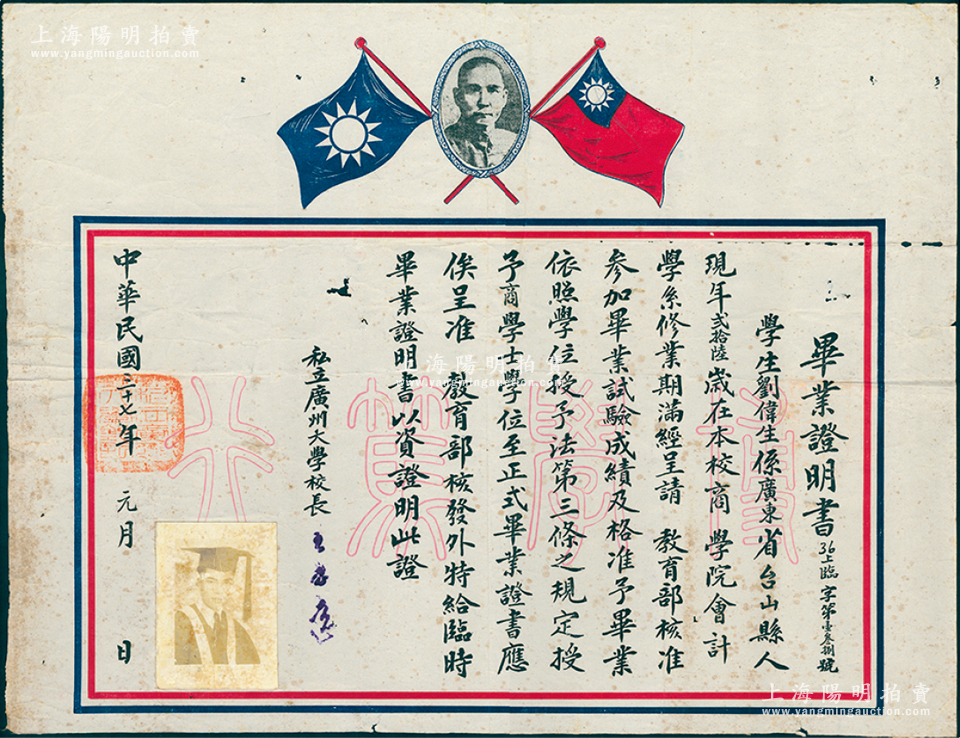 上海陽明拍賣
www.yangmingauction.com
畢業證明書 36上臨字第壹叁捌號
學生劉偉生係廣東省台山縣人
現年貳拾陸歲在本校商學院會計
學系修業期滿經呈請 教育部核准
參加畢業試驗成績及格准予畢業
依照學位授予法第三條之規定授
予商學士學位至正式畢業證書應
俟呈准 教育部核發外特給臨時
畢業證明書以資證明此證
私立廣州大學校長
中華民國三十七年 元月 日
上海陽明拍賣
www.yangmingauction.com
上海陽明拍賣
www.yangmingauction.com